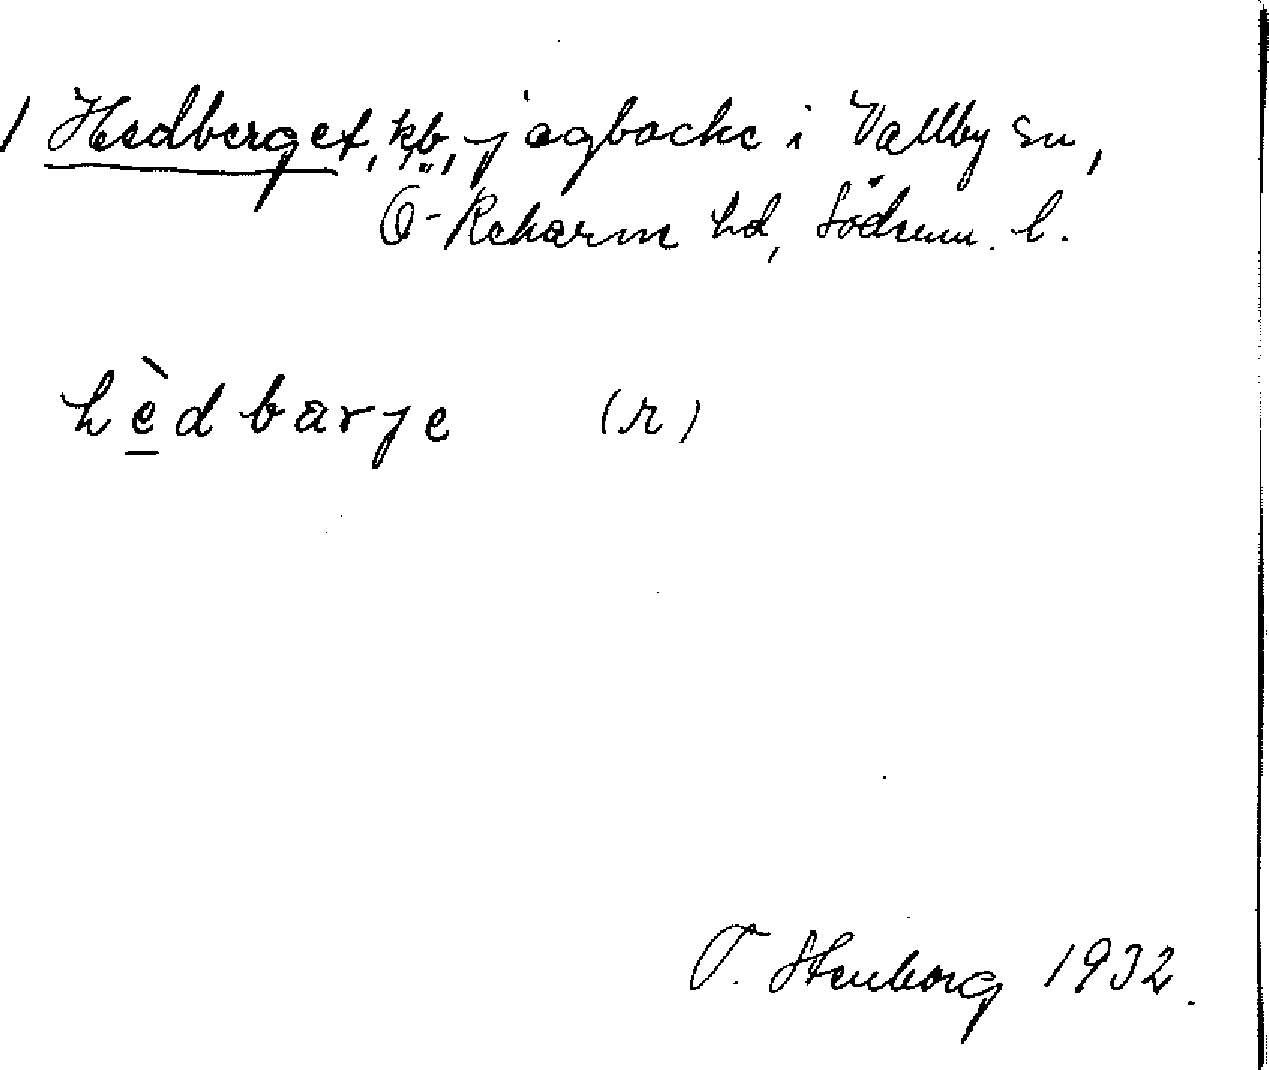 / Hedberget, kb, jagbacke i Vallby sn,
Ö-Rekarne hd, Söderm. l.
hèdbarje (r)
T. Stenborg 1932.